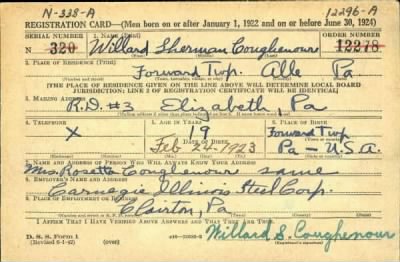 N-338-A 12296-A
REGISTRATION CARD—(Men born on or after January 1, 1922 and on or before June 30, 1924)
SERIAL NUMBER 1. NAME (Print) ORDER NUMBER
N- 320 Willard Sherman Coughenour 12278
2. PLACE OF RESIDENCE (Print)
Forward Twp. Alle Pa
[THE PLACE OF RESIDENCE GIVEN ON THE LINE ABOVE WILL DETERMINE LOCAL BOARD
JURISDICTION; LINE 2 OF REGISTRATION CERTIFICATE WILL BE IDENTICAL]
3. MAILING ADDRESS
R.D. #3 Elizabeth, Pa
4. TELEPHONE 5. AGE IN YEARS 6. PLACE OF BIRTH
X 19 Forward Twp
DATE OF BIRTH
Feb 24 1923 Pa - U.S.A.
7. NAME AND ADDRESS OF PERSON WHO WILL ALWAYS KNOW YOUR ADDRESS
Mrs. Rosetta Coughenour same
8. EMPLOYER'S NAME AND ADDRESS
Carnegie Illinois Steel Corp.
9. PLACE OF EMPLOYMENT OR BUSINESS
Clairton, Pa
I AFFIRM THAT I HAVE VERIFIED ABOVE ANSWERS AND THAT THEY ARE TRUE.
D. S. S. Form 1
(Revised 6-1-42) (over) Willard S. Coughenour